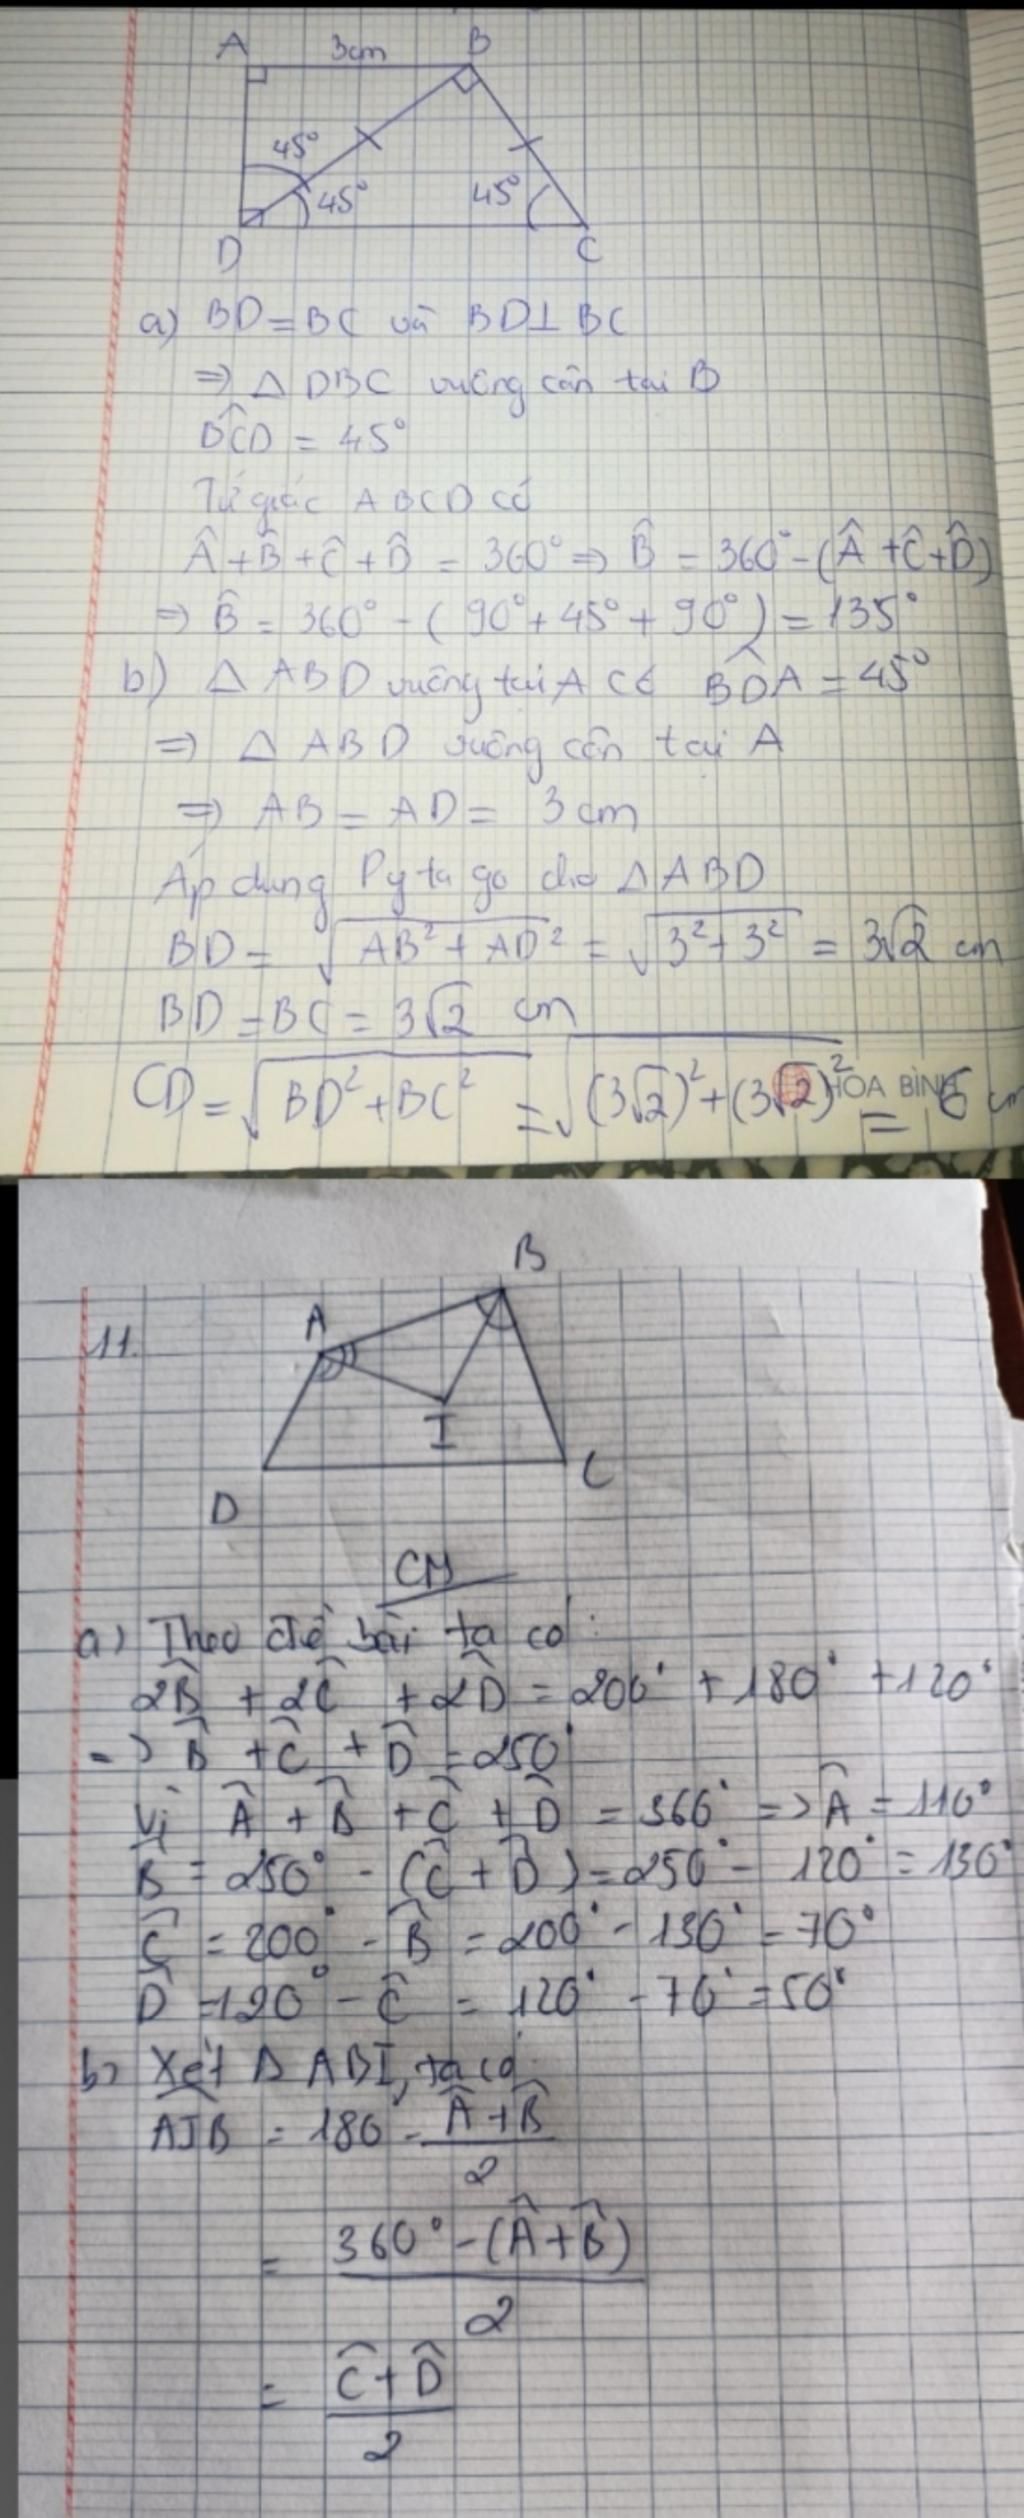 A 3cm B
45°
45° 45°
D C
a) BD = BC và BD ⊥ BC
=> △ DBC vuông cân tại B
BĈD = 45°
Tứ giác ABCD có
Â + B̂ + Ĉ + D̂ = 360° => B̂ = 360° - (Â + Ĉ + D̂)
=> B̂ = 360° - ( 90° + 45° + 90° ) = 135°
b) △ ABD vuông tại A có BD̂A = 45°
=> △ ABD vuông cân tại A
=> AB = AD = 3 cm
Áp dụng Py ta go cho △ ABD
BD = √(AB² + AD²) = √(3² + 3²) = 3√2 cm
BD = BC = 3√2 cm
CD = √(BD² + BC²) = √((3√2)² + (3√2)²) = 6 cm
HÒA BÌNH
B
11. A
I
D C
CM
a) Theo đề bài ta có:
2B̂ + 2Ĉ + 2D̂ = 200° + 180° + 120°
=> B̂ + Ĉ + D̂ = 250°
Vì Â + B̂ + Ĉ + D̂ = 360° => Â = 110°
B̂ = 250° - (Ĉ + D̂) = 250° - 120° = 130°
Ĉ = 200° - B̂ = 200° - 130° = 70°
D̂ = 120° - Ĉ = 120° - 70° = 50°
b) Xét △ ABI, ta có:
AIB = 180 - (Â + B̂)/2
= (360° - (Â + B̂))/2
= (Ĉ + D̂)/2